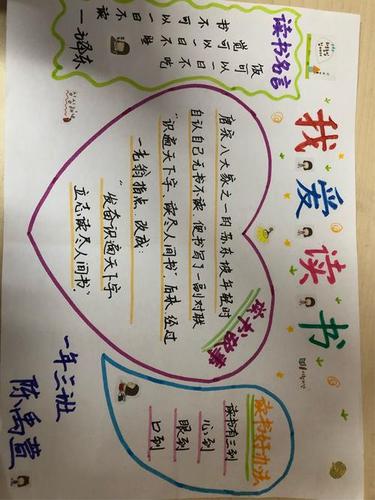 我爱读书
读书名言
饭可以一日不吃
觉可以一日不睡
书不可以一日不读
—毛泽东
读书故事
唐宋八大家之一的苏东坡年轻时
自认自己无书不读，便书写了一副对联
“识遍天下字，读尽人间书”后来，经过
一老翁指点，改成：
“发奋识遍天下字，
立志读尽人间书”。
读书好办法
读书有三到
心到
眼到
口到
一年三班
陈禹萱